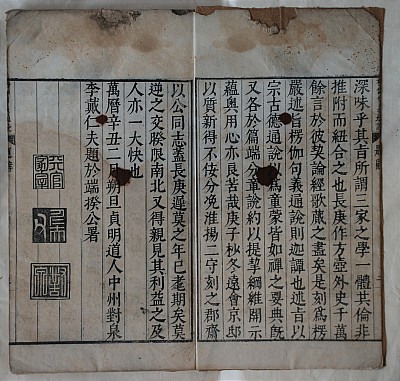 深味乎其旨所謂三家之學一體其倫非
推附而紐合之也長庚作方壺外史千萬
餘言於彼契論經歌蔵之盡矣是刻爲楞
嚴述旨楞伽句義通說則迦譚也述旨以
宗古德通說以爲童蒙皆如禪之要典旣
又各於篇端分章詮約以提挈綱維開示
蘊奥用心亦良苦哉庚子杪冬遠會京邸
以質新得不佞分俛淮揚二守刻之郡齋
以公同志蓋長庚遲莫之年已耄期矣莫
逆之交睽限南北又得親見其利益之及
人亦一大快也
萬曆辛丑二月朔旦貞明道人中州對泉
李戴仁夫題於端揆公署
天官冢宰